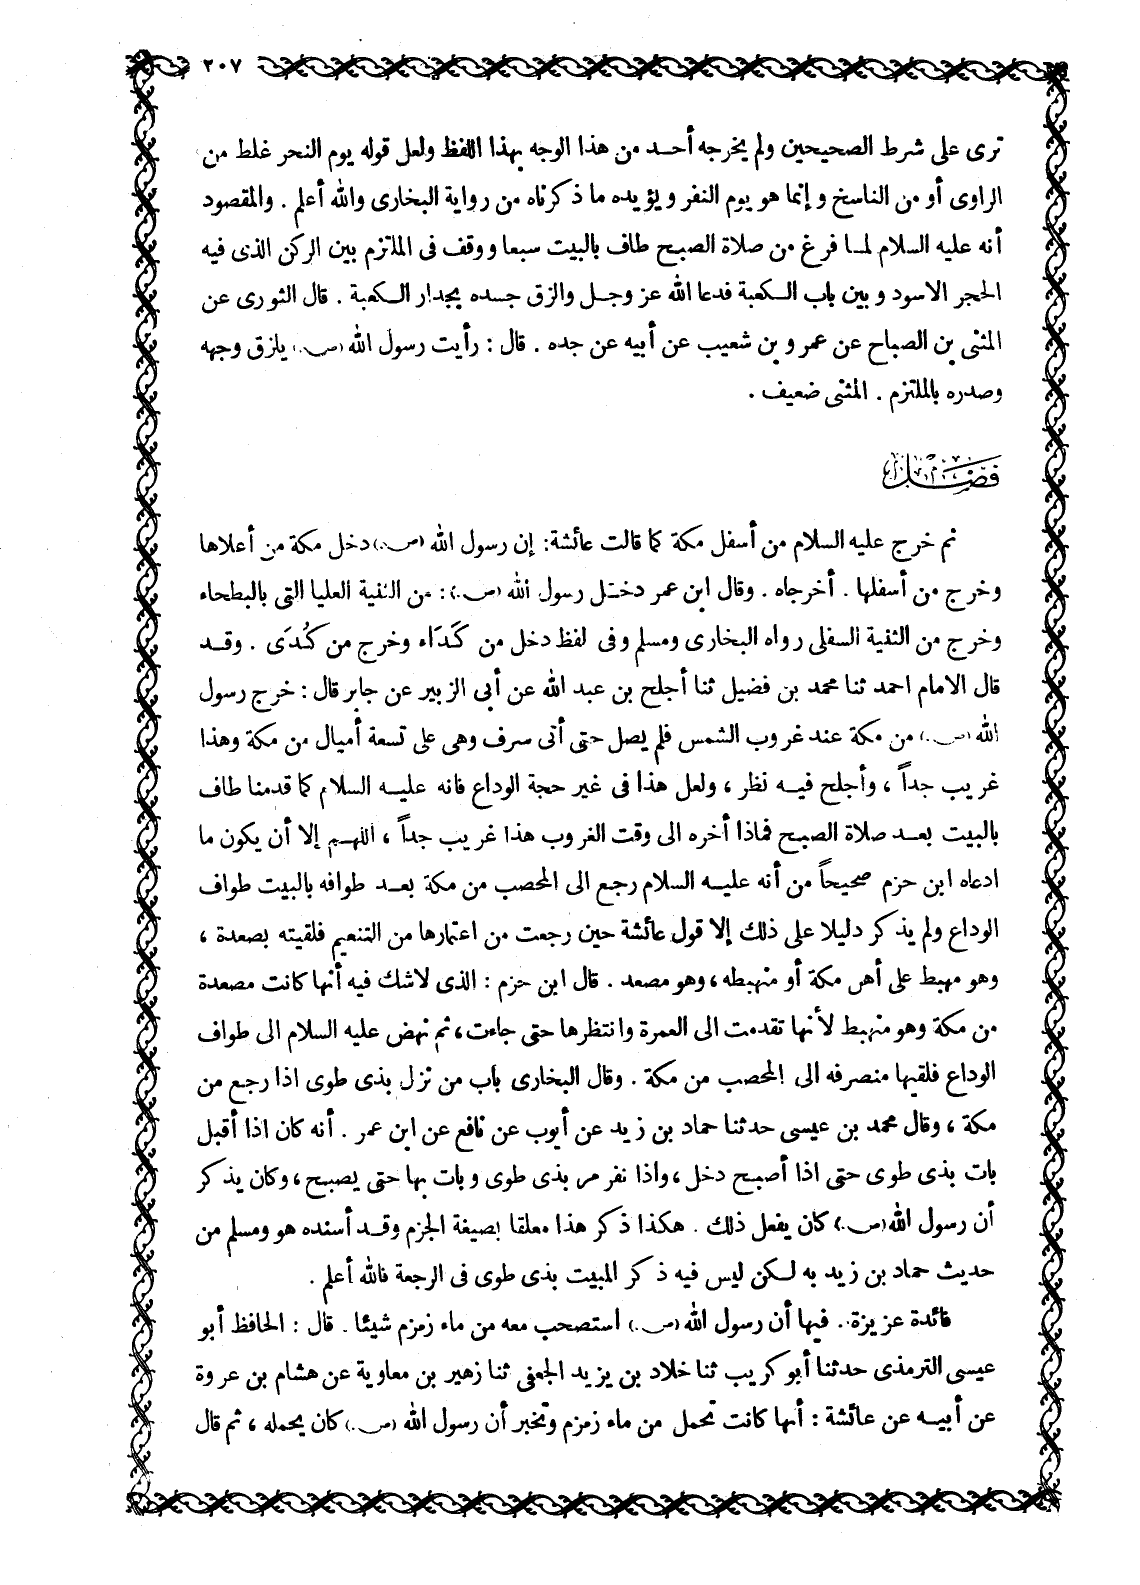 ٢٠٧
ترى على شرط الصحيحين ولم يخرجه أحد من هذا الوجه بهذا اللفظ ولعل قوله يوم النحر غلط من
الراوى أو من الناسخ وإنما هو يوم النفر ويؤيده ما ذكرناه من رواية البخارى والله أعلم . والمقصود
أنه عليه السلام لما فرغ من صلاة الصبح طاف بالبيت سبعا ووقف فى الملتزم بين الركن الذى فيه
الحجر الاسود وبين باب الكعبة فدعا الله عز وجل والزق جسده بجدار الكعبة . قال الثورى عن
المثنى بن الصباح عن عمرو بن شعيب عن أبيه عن جده . قال : رأيت رسول الله (ص.) يلزق وجهه
وصدره بالملتزم . المثنى ضعيف .
فصل
ثم خرج عليه السلام من أسفل مكة كما قالت عائشة: إن رسول الله (ص.) دخل مكة من أعلاها
وخرج من أسفلها . أخرجاه . وقال ابن عمر دخل رسول الله (ص.) : من الثنية العليا التى بالبطحاء
وخرج من الثنية السفلى رواه البخارى ومسلم وفى لفظ دخل من كَدَاء وخرج من كُدَى . وقد
قال الامام احمد ثنا محمد بن فضيل ثنا أجلح بن عبد الله عن أبى الزبير عن جابر قال : خرج رسول
الله (ص.) من مكة عند غروب الشمس فلم يصل حتى أتى سرف وهى على تسعة أميال من مكة وهذا
غريب جداً ، وأجلح فيه نظر ، ولعل هذا فى غير حجة الوداع فانه عليه السلام كما قدمنا طاف
بالبيت بعد صلاة الصبح فماذا أخره الى وقت الغروب هذا غريب جداً ، اللهم إلا أن يكون ما
ادعاه ابن حزم صحيحاً من أنه عليه السلام رجع الى المحصب من مكة بعد طوافه بالبيت طواف
الوداع ولم يذكر دليلا على ذلك إلا قول عائشة حين رجعت من اعتمارها من التنعيم فلقيته بصعدة ،
وهو مهبط على أهل مكة أو منهبطه ، وهو مصعد . قال ابن حزم : الذى لاشك فيه أنها كانت مصعدة
من مكة وهو منهبط لأنها تقدمت الى العمرة وانتظرها حتى جاءت ، ثم نهض عليه السلام الى طواف
الوداع فلقيها منصرفه الى المحصب من مكة . وقال البخارى باب من نزل بذى طوى اذا رجع من
مكة ، وقال محمد بن عيسى حدثنا حماد بن زيد عن أيوب عن نافع عن ابن عمر . أنه كان اذا أقبل
بات بذى طوى حتى اذا أصبح دخل ، واذا نفر مر بذى طوى وبات بها حتى يصبح ، وكان يذكر
أن رسول الله (ص.) كان يفعل ذلك . هكذا ذكر هذا معلقا بصيغة الجزم وقد أسنده هو ومسلم من
حديث حماد بن زيد به لكن ليس فيه ذكر المبيت بذى طوى فى الرجعة فالله أعلم .
فائدة عزيزة . فيها أن رسول الله (ص.) استصحب معه من ماء زمزم شيئا . قال : الحافظ أبو
عيسى الترمذى حدثنا أبو كريب ثنا خلاد بن يزيد الجعفى ثنا زهير بن معاوية عن هشام بن عروة
عن أبيه عن عائشة : أنها كانت تحمل من ماء زمزم وتخبر أن رسول الله (ص.) كان يحمله ، ثم قال